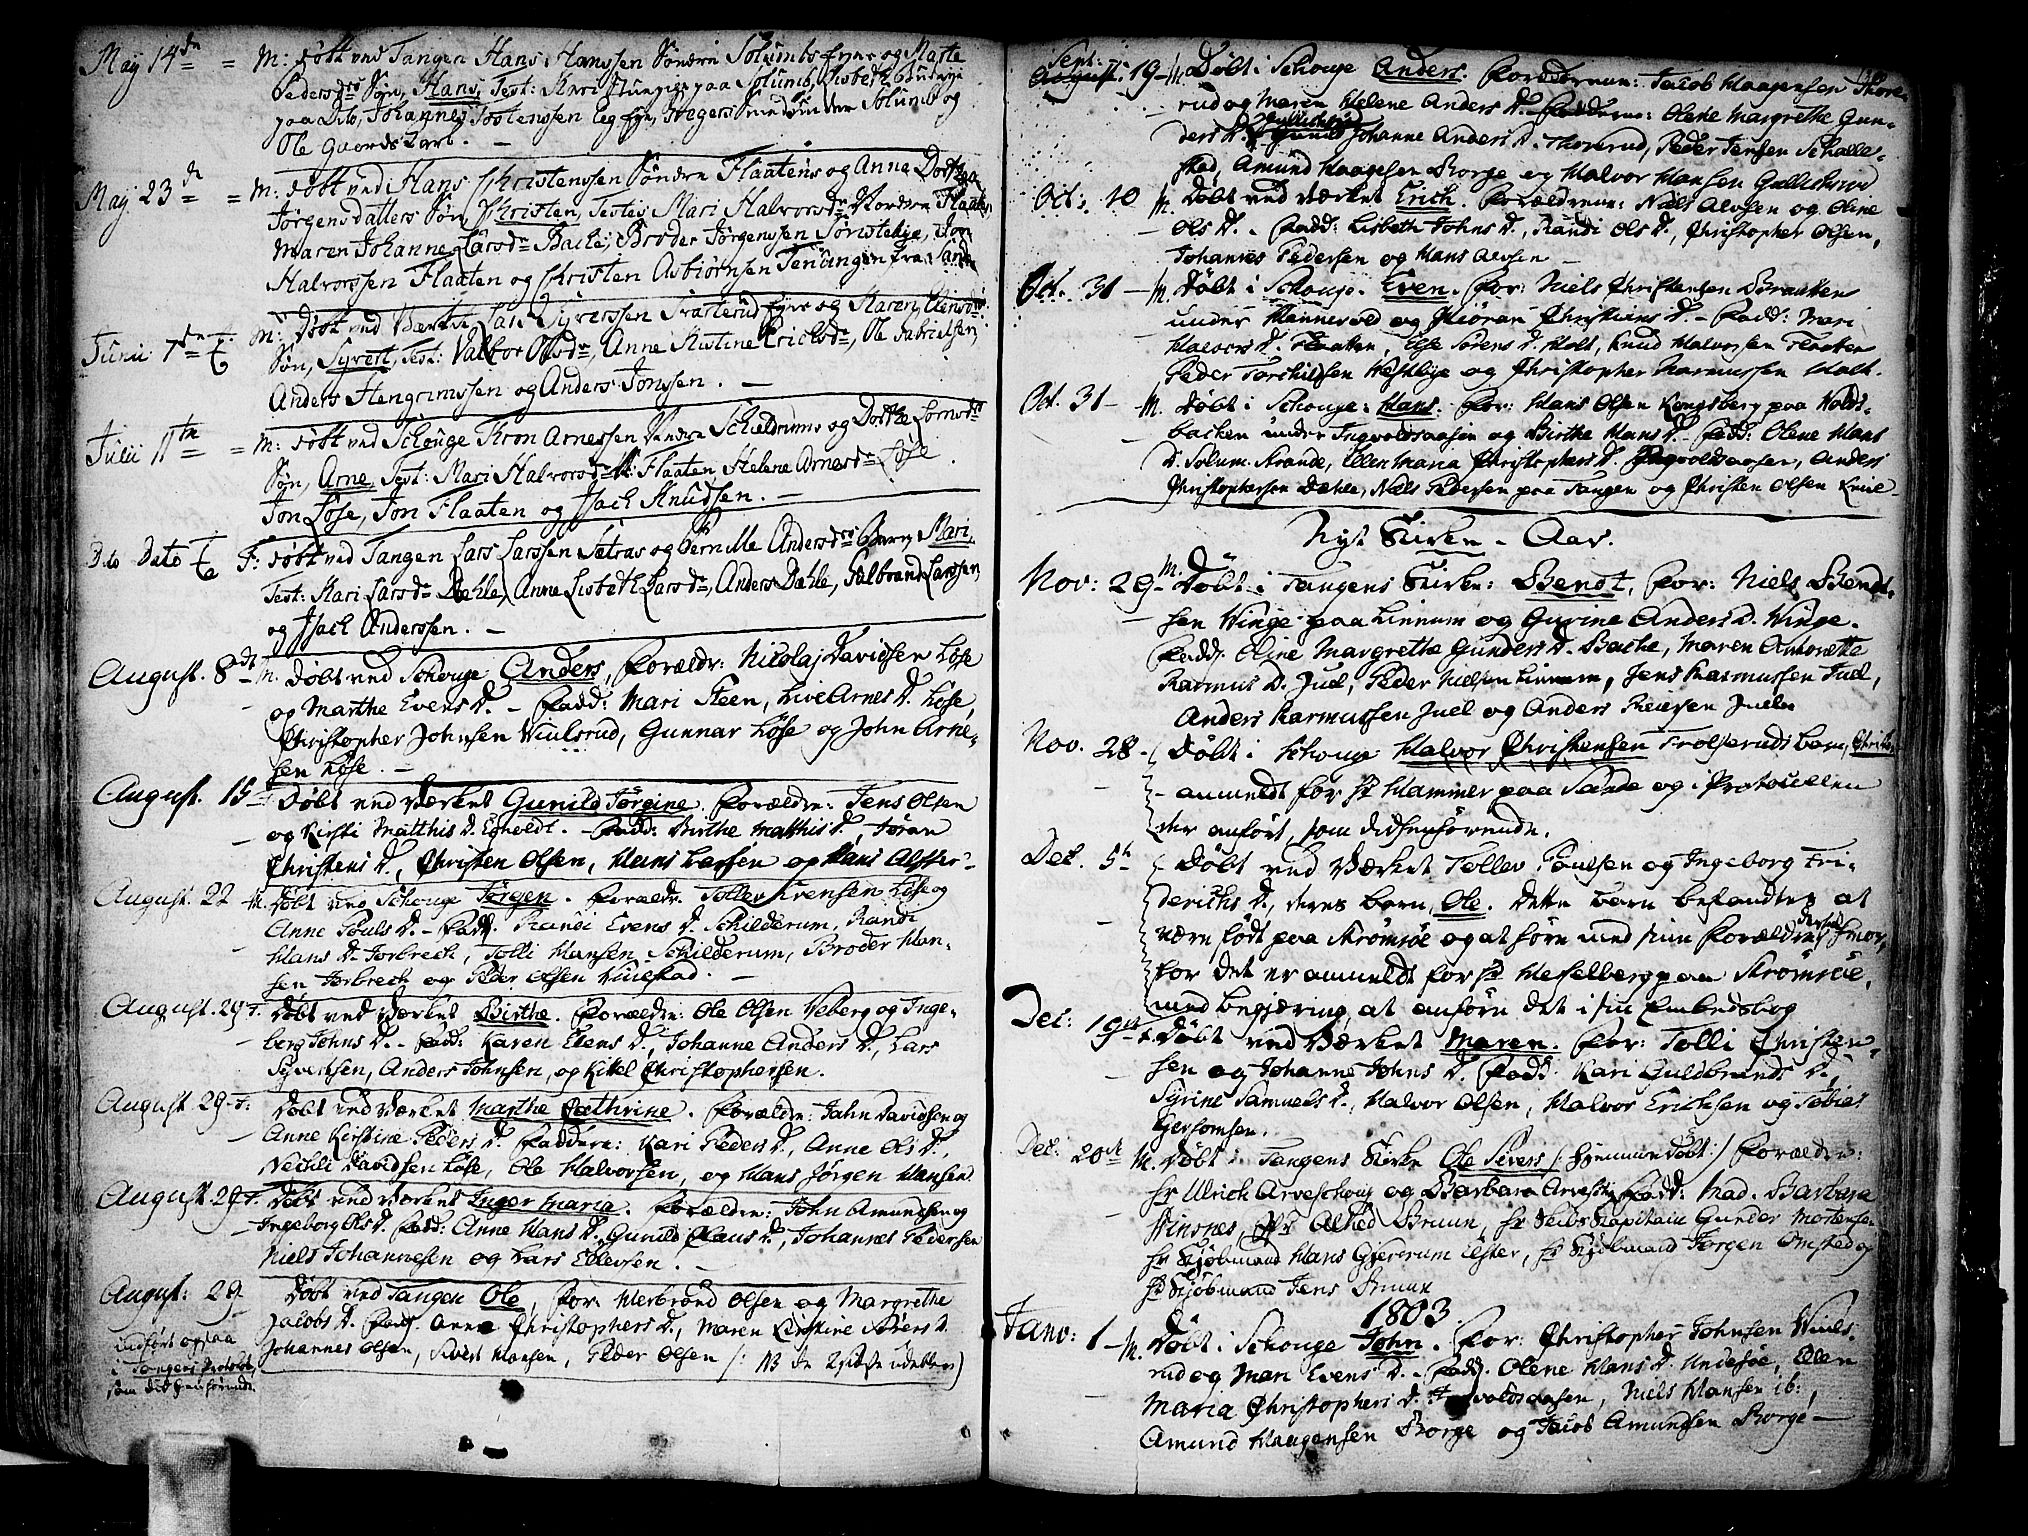 May 14de = M: døbt ved Tangen Hans Hanssen Søndre Solumbs fyre og Marte
Pedersdrs Søn, Hans, Test: Kari paa Solumb, Lisbeth
paa Dito, Johannes Tostenssen Eegfyr, under Solumb og
Ole Gaardskarl. —
May 23de = M: døbt ved Hans Christenssen Søndre Flaatens og Anna Dorthea
Jørgensdatters Søn, Christen, Testes Mari Halvorsdr Nordre Flaaten,
Maren Johanne Larsdr Bache, Broder Jørgenssen Jon
Halvorssen Flaaten og Christen Asbiørnsen fra Sande
Junii 7de M: døbt ved Værket Lars Syverssen fyre og Karen
Søn, Syvert, Test: Valbor Olsdr, Anne Kistine Ericksdr, Ole Gabrielsen,
Anders Hengrimssen og Anders Jonssen. —
Julii 11te = M: døbt ved Schouge Tron Arnessen Søndre Schieldrums og Dorthe
Søn, Arne, Test: Mari Halvorsdr N: Flaaten Helene Arnesdr Løse
Jon Løse, Jon Flaaten og Isach Knudssen. —
Dito Dato F: døbt ved Tangen Lars Larssen Sætras og Pernille Andersdrs barn, Mari,
Test: Kari Larsdr Dæhle, Anne Lisbeth Larsdr, Anders Dæhle, Gulbrand Larssen,
og Isach Anderssen. —
August. 8de M. Døbt ved Schouge Anders, Forældr: Nicolaj Davidsen Løse
og Marthe Evens D. — Fadd: Mari Steen, Live Arnes D. Løse,
Christopher Johnsen Viulsrud, Gunnar Løse og John Arne-
sen Løse. —
August. 15 Døbt ved Værket Gunild Jørgine. Forældre: Jens Olsen
og Kirsti Matthis D. Egholdt. — Fadd: Birthe Matthis D., Jøran
Christens D., Christen Olsen, Hans Larsen og Hans
August. 22 M. Døbt ved Schouge Jørgen. Forældr. Tollev Evensen Løse og
Anne Pouls D. — Fadd. Randi Evens D. Schilderum, Randi
Hans D. Torbrech, Tolli Hansen Schilderum, Broder Han-
sen Torbrech og Peder Olsen Viulstad. —
August. 29 F. Døbt ved Værket Birthe. Forældre: Ole Olsen Veberg og Inge-
borg Johns D. — Fadd: Karen Evens D., Johanne Anders D., Lars
Syvertsen, Anders Johnsen, og Kittel Christophersen.
August 29 F. Døbt ved Værket Marthe Cathrine. Forældre: John Davidsen og
Anne Kirstine Peders D. Faddere: Kari Peders D., Anne Ols D.,
Nechli Davidsen Løse, Ole Halvorsen, og Hans Jørgen Hansen
August. 29 F. Døbt ved Værket Inger Maria. Forældre: John Amundsen og
Ingeborg Ols D. Fadd: Anne Hans D. Gunild Claus D., Johannes Pedersen
Niels Johannesen og Lars Ellevsen. —
August: 29 Døbt ved Tangen Ole, For: Herbrand Olsen og Margrethe
Jacobs D. Fadd. Anne Christophers D., Maren Kirstine Sivers D.
Johannes Olsen, Sivert Hansen, Peder Olsen (: NB de 2 sidste udebleve)
indført ogsaa
i Tangens Protokol,
som did henhørende.
Sept:
August: 19 M. Døbt i Schouge Anders. Forældrene: Jacob Haagensen Thore-
rud og Maren Helene Anders D. Fadderne: Olene Margrethe Gun-
ders D. Johanne Anders D. Thorerud, Peder Jensen Schalle-
stad, Amund Haagesen Borge og Halvor Hansen Gullichsrud
Oct. 10 M. Døbt ved Værket Erich. Forældrene: Niels Alvsen og Olene
Ols D. — Fadd: Lisbeth Johns D., Randi Ols D., Christopher Olsen,
Johannes Pedersen og Hans Alvsen —
Oct. 31 — M. Døbt i Schouge. Even. For: Niels Christensen Braaten
under Hannevold og Kiøran Christens D. — Fadd: Mari
Halvors D. Flaaten, Else Sørens D. Holt, Knud Halvorsen Flaaten
Peder Torchildsen Vestbye og Christopher Rasmussen Holt.
Oct. 31 — M. Døbt i Schouge: Hans. For: Hans Olsen Kongsberg paa Volds-
backen under Ingvoldsaasen og Birthe Hans D. — Fadd: Olene Hans
D. Solum Strande, Ellen Maria Christophers D. Ingvoldsaasen, Anders
Christophersen Dæhle, Niels Pedersen paa Tangen og Christen Olsen
Nyt Kirke-Aar.
Nov: 29 M. Døbt i Tangens Kirke: Bendt, For: Niels Bendt-
sen Winge paa Linnum og Gurine Anders D. Winge.
Fadd. Oline Margrethe Gunders D. Bache, Maren Antonette
Rasmus D. Juel, Peder Nielsen Linnum, Jens Rasmussen Juel,
Anders Rasmussen Juel og Anders Reiersen Juel
Nov. 28. Døbt i Schouge Halvor Christensen Trolserud's barn, Christen
— anmeldt for Hr Hammer paa Sande og i Protocollen
der anført, som didhenhørende.
Dec. 5te Døbt ved Værket Tollev Poulsen og Ingeborg Fri-
derichs D., deres barn, Ole. Dette barn befandtes at
være født paa Strømsøe og at høre med sine Forældre der
for det er anmeldt for Hr Hesselberg paa Strømsøe,
med begjæring, at anføre det i sin Embedsbog
Dec: 19de F. Døbt ved Værket Maren. For: Tolli Christen-
sen og Johanne Johns D. Fadd: Kari Guldbrands D.,
Syrine Samuels D., Halvor Olsen, Halvor Erichsen og Tobias
Gersomsen.
Dec: 20de M. Døbt i Tangens Kirke Ole Sivers (: Hjemmedøbt :) Forældre:
Hr Ulrich Arveschoug og Barbara Arvesch: Fadd: Mad. Barbara
Hinsnes, Hr Bruun, Hr Skibs Kapitain Gunder Mortensen
Hr Kjøbmand Hans Gjererum Elster, Hr Kjøbmand Jørgen Omsted og
Hr Kjøbmand Jens Bruun
1803
Janv: 1 — M. Døbt i Schouge John. For: Christopher Johnsen Viuls-
rud og Mari Evens D. — Fadd. Olene Hans D. Undesøe, Ellen
Maria Christophers D. Ingvoldsaasen, Niels Hansen ib:,
Amund Haagensen Borge og Jacob Amundsen Borge —